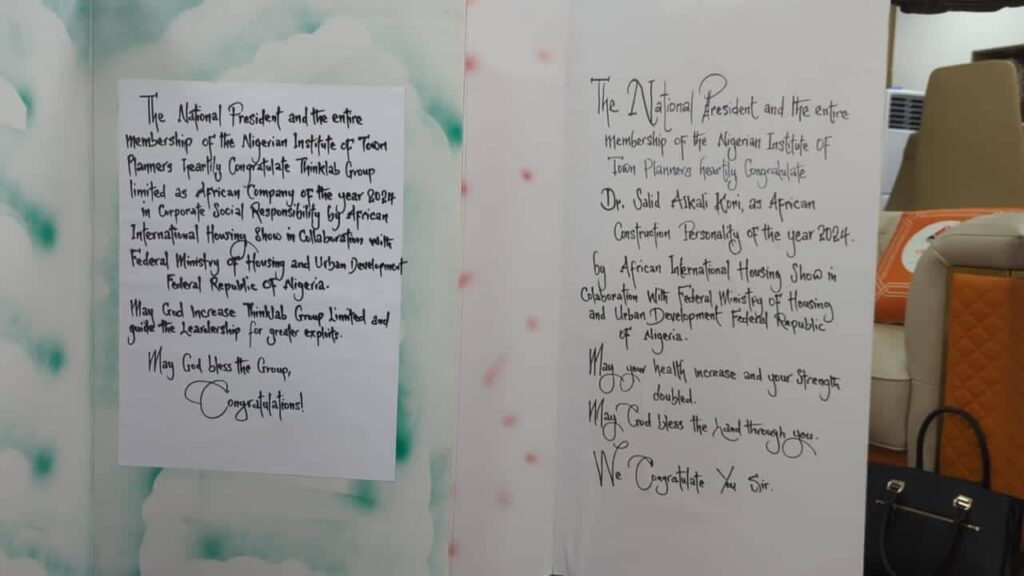 The National President and the entire
membership of the Nigerian Institute of Town
Planners heartily Congratulate Thinklab Group
limited as African Company of the year 2024
in Corporate Social Responsibility by African
International Housing Show in Collaboration with
Federal Ministry of Housing and Urban Development
Federal Republic of Nigeria.
May God increase Thinklab Group Limited and
guide the Leardership for greater exploits.
May God bless the Group,
Congratulations!
The National President and the entire
membership of the Nigerian Institute Of
Town Planners heartily Congratulate
Dr. Salid Alkali Kori, as African
Construction Personality of the year 2024.
by African International Housing Show in
Colaboration With Federal Ministry of Housing
and Urban Development Federal Republic
of Nigeria.
May your health increase and your Strength
doubled.
May God bless the Land through you.
We Congratulate You Sir.